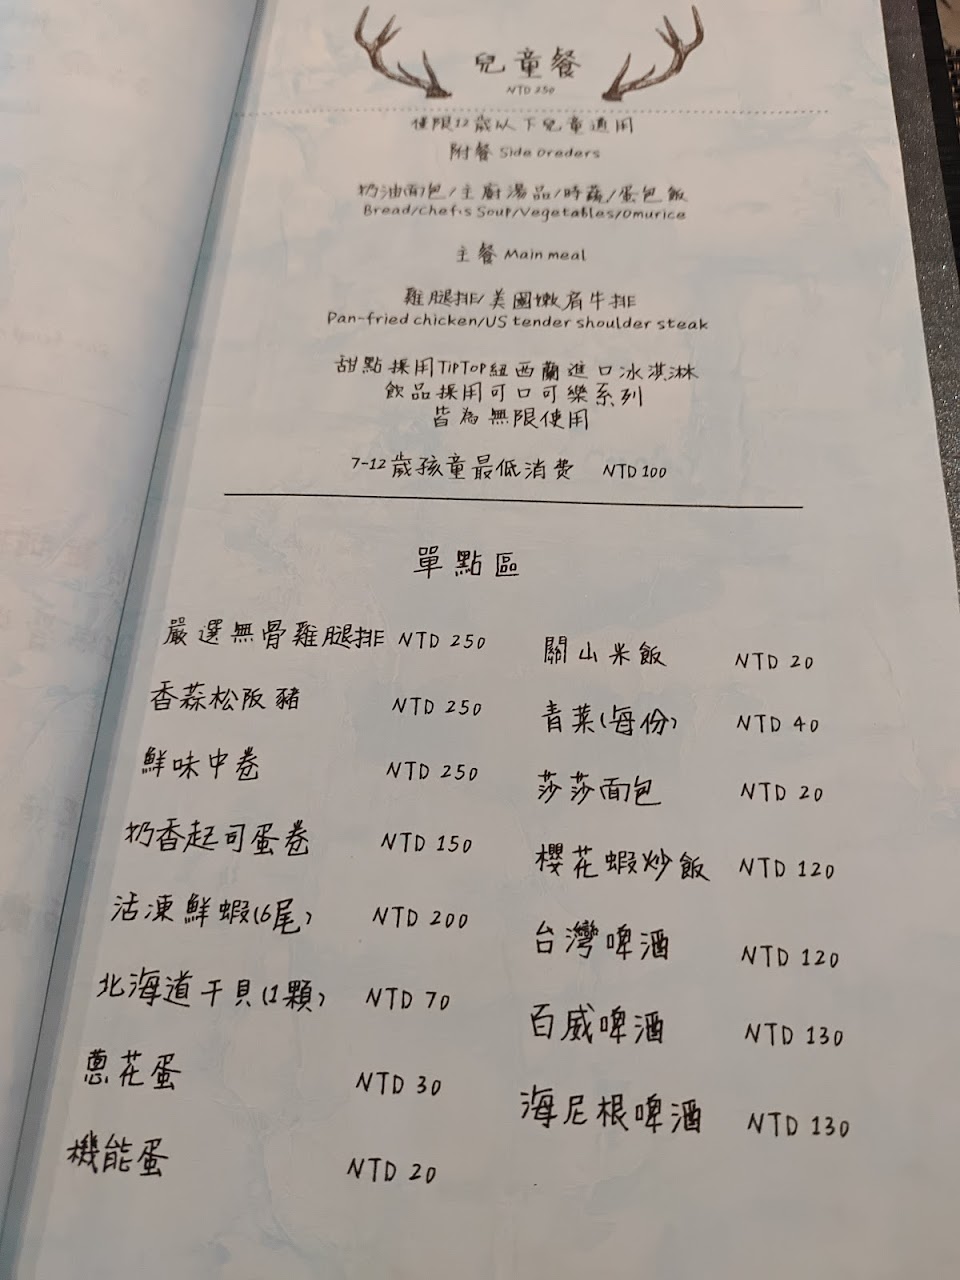 兒童餐
NTD 250
僅限12歲以下兒童適用
附餐 Side oreders
奶油面包/主廚湯品/時蔬/蛋包飯
Bread/Chef,s Soup/Vegetables/Omurice
主餐 Main meal
雞腿排/美國嫩肩牛排
Pan-fried chicken/US tender shoulder steak
甜點採用TIPTOP紐西蘭進口冰淇淋
飲品採用可口可樂系列
皆為無限使用
7-12歲孩童最低消費 NTD 100
單點區
嚴選無骨雞腿排 NTD 250
香蒜松阪豬 NTD 250
鮮味中卷 NTD 250
奶香起司蛋卷 NTD 150
活凍鮮蝦(6尾) NTD 200
北海道干貝(1顆) NTD 70
蔥花蛋 NTD 30
機能蛋 NTD 20
關山米飯 NTD 20
青菜(每份) NTD 40
莎莎面包 NTD 20
櫻花蝦炒飯 NTD 120
台灣啤酒 NTD 120
百威啤酒 NTD 130
海尼根啤酒 NTD 130